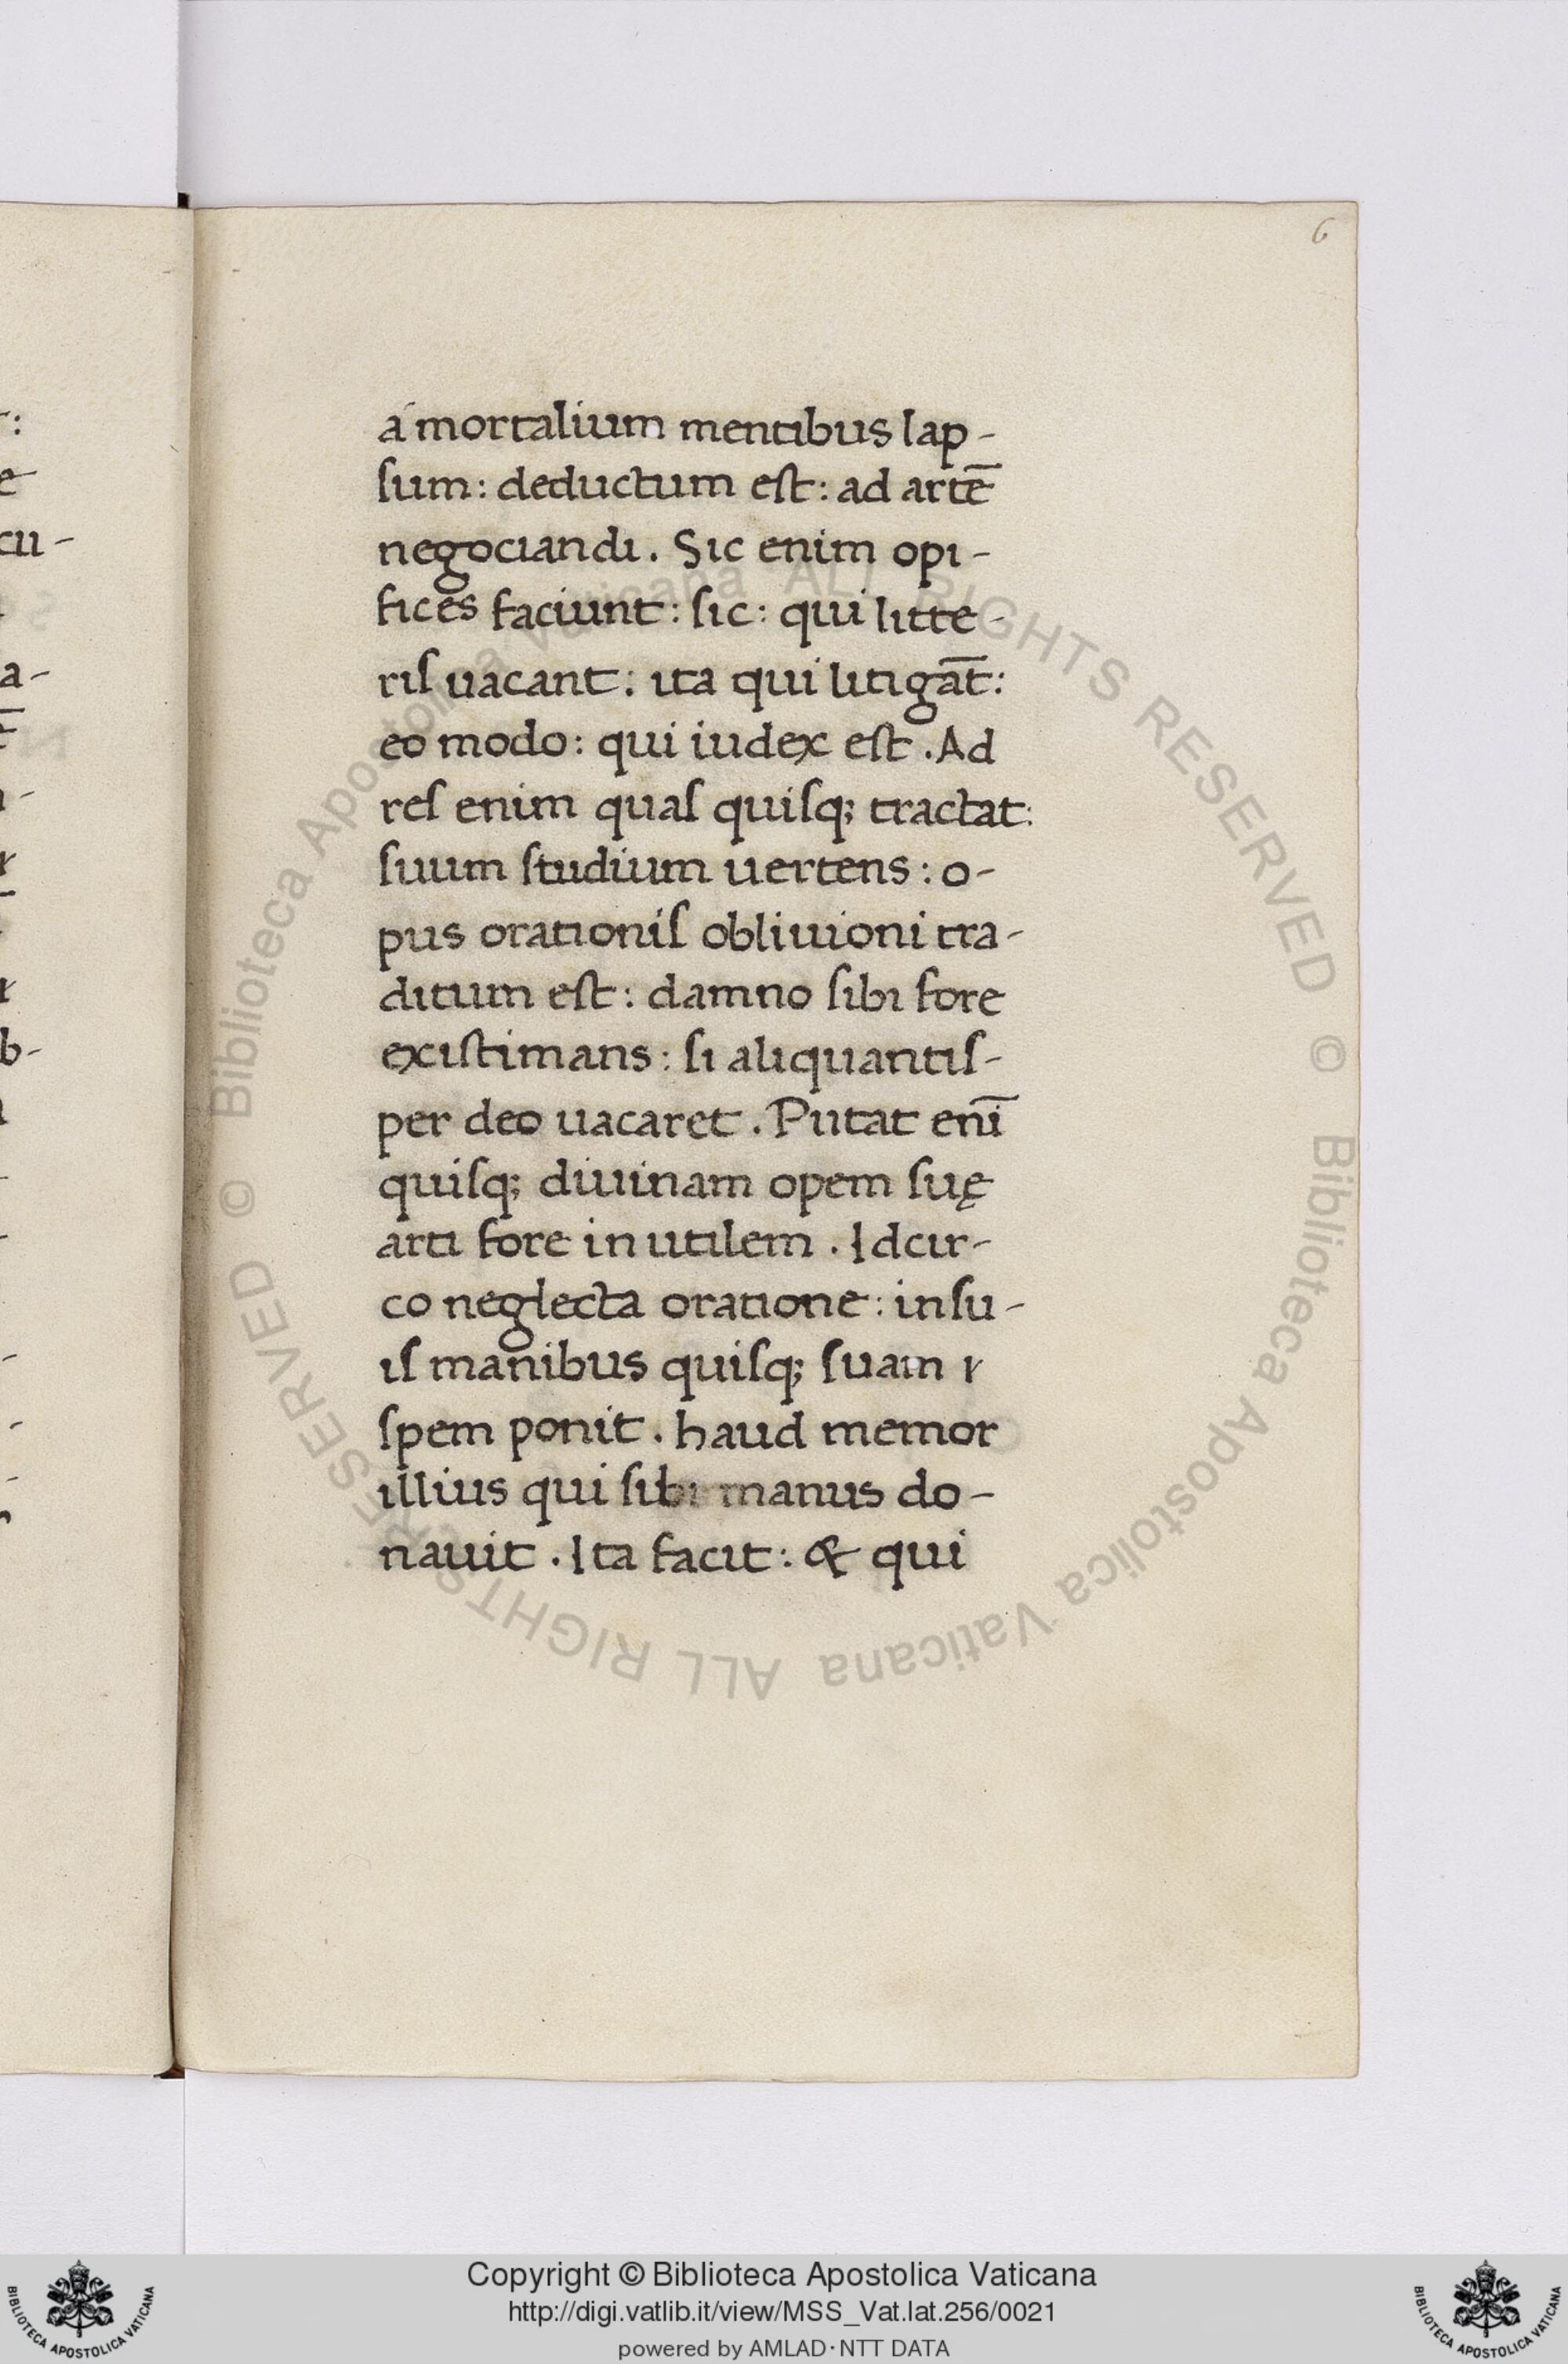 6
á mortalium mentibus lap-
ſum: deductum eſt: ad artē
negociandi. Sic enim opi-
fices faciunt: ſic: qui litte-
riſ uacant: ita qui litigāt:
eo modo: qui iudex eſt. Ad
reſ enim quaſ quiſq; tractat:
ſuum ſtudium uertens: o-
pus orationiſ obliuioni tra-
ditum eſt: damno ſibi fore
exiſtimans: ſi aliquantiſ-
per deo uacaret. Putat enī
quiſq; diuinam opem ſuę
arti fore inutilem. Idcir-
co neglecta oratione: in ſu-
iſ manibus quiſq; ſuam
ſpem ponit. haud memor
illius qui ſibi manus do-
nauit. Ita facit: & qui
© Biblioteca Apostolica Vaticana ALL RIGHTS RESERVED
© Biblioteca Apostolica Vaticana ALL RIGHTS RESERVED
Copyright © Biblioteca Apostolica Vaticana
http://digi.vatlib.it/view/MSS_Vat.lat.256/0021
powered by AMLAD·NTT DATA
BIBLIOTECA APOSTOLICA VATICANA
BIBLIOTECA APOSTOLICA VATICANA